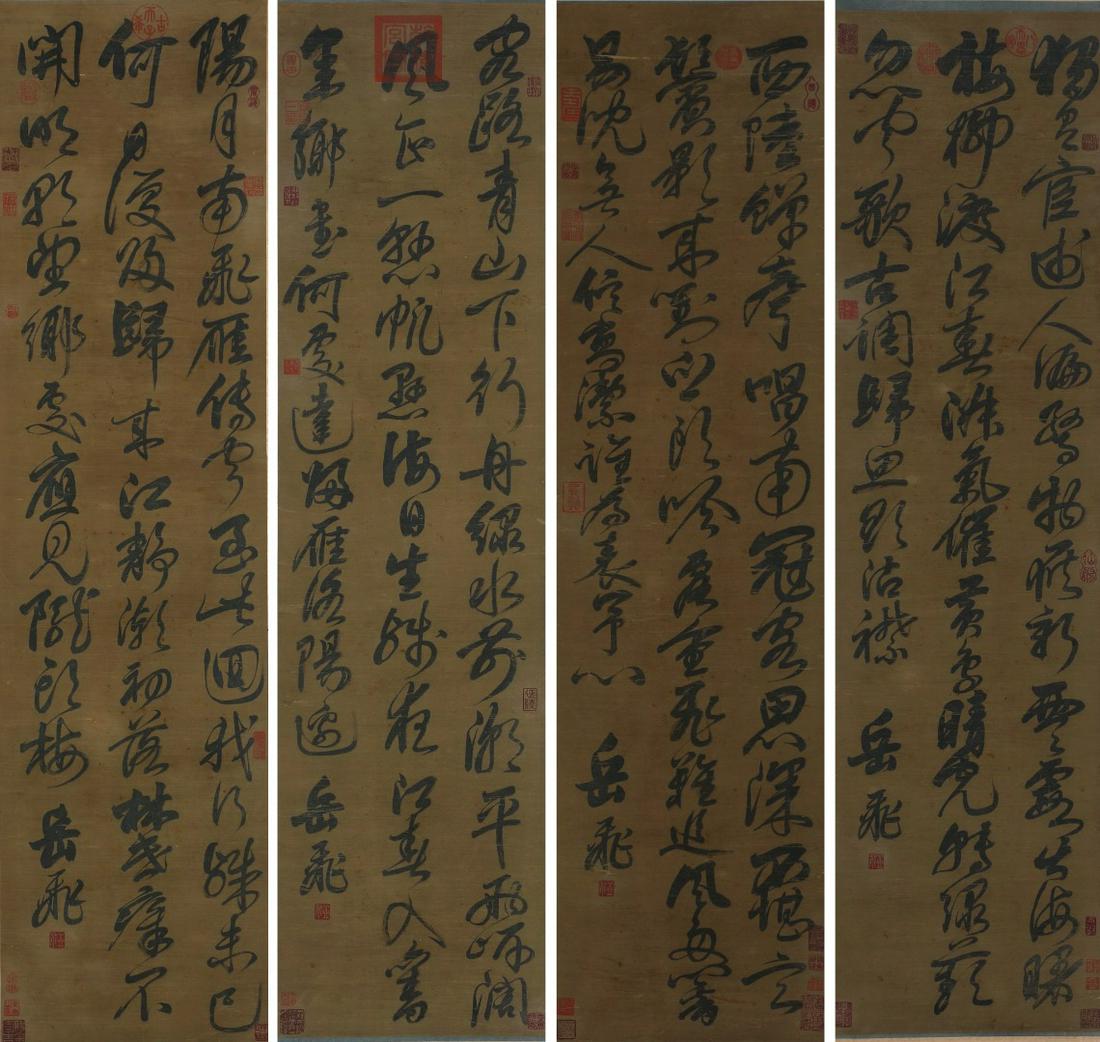 獨有宦遊人偏驚物候新雲霞出海曙
梅柳渡江春淑氣催黃鳥晴光轉綠蘋
忽聞歌古調歸思欲沾襟
岳飛
西陸蟬聲唱南冠客思深不堪玄
鬢影來對白頭吟露重飛難進風多響
易沈無人信高潔誰為表予心
岳飛
客路青山下行舟綠水前潮平兩岸闊
風正一懸帆懸海日生殘夜江春入舊
年鄉書何處達歸雁洛陽邊
岳飛
陽月南飛雁傳聞至此迴我行殊未已
何日復歸歸來江靜潮初落林昏瘴不
開明朝望鄉處應見隴頭梅
岳飛